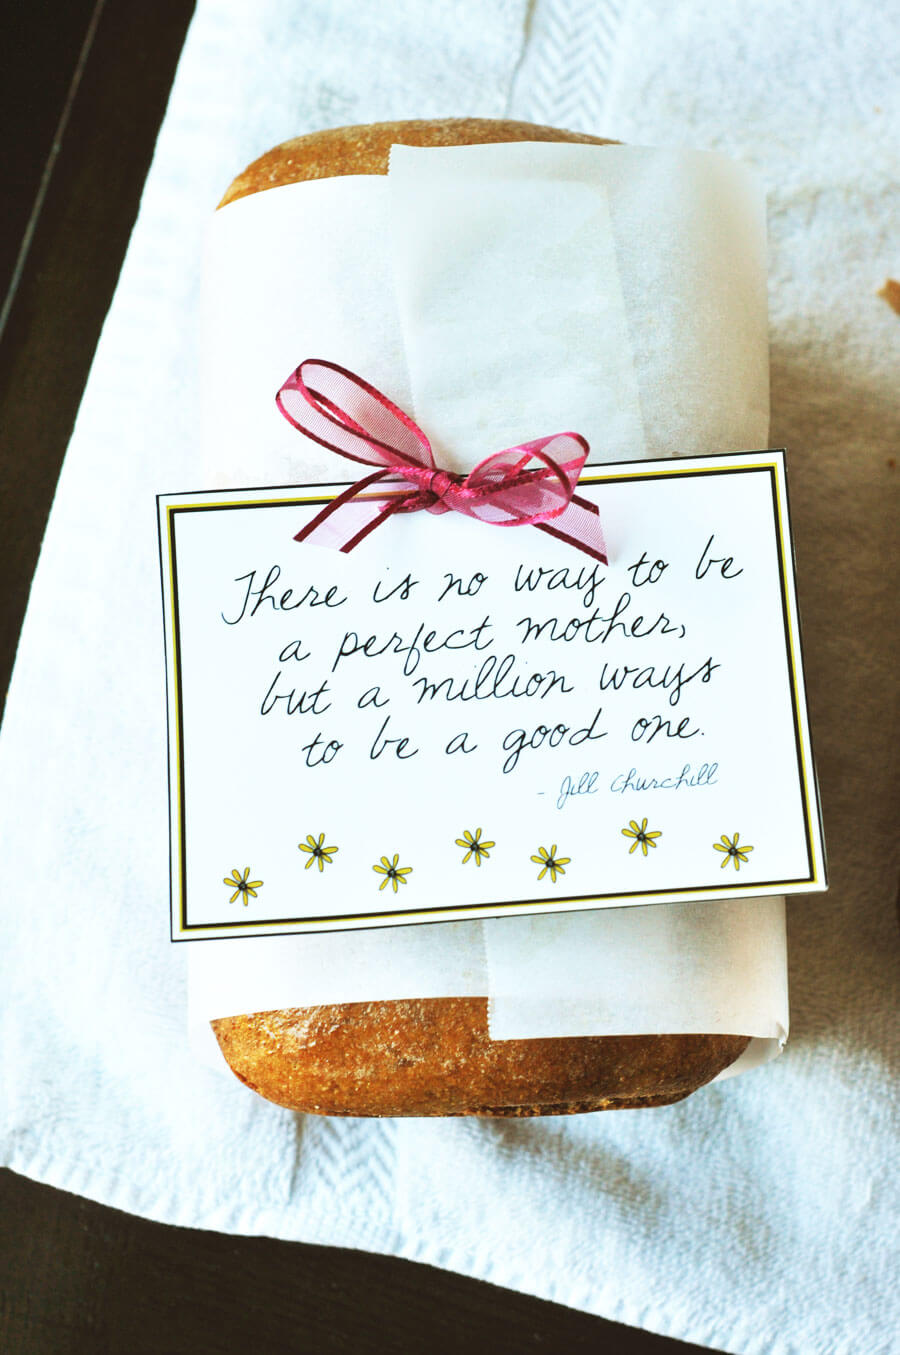 There is no way to be
a perfect mother,
but a million ways
to be a good one.
- Jill Churchill